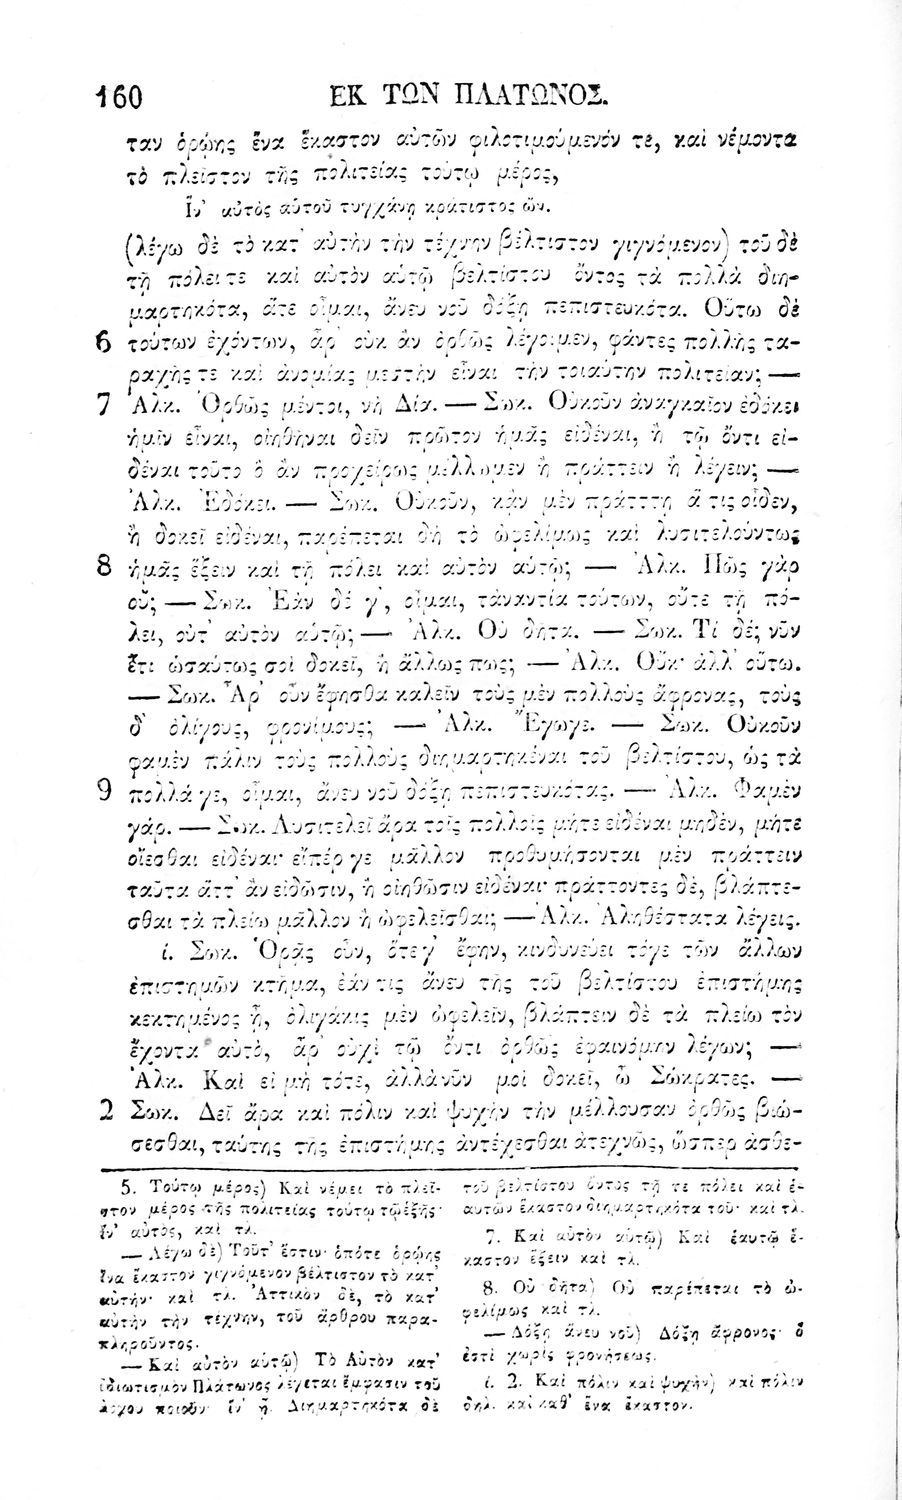 160 ΕΚ ΤΩΝ ΠΛΑΤΩΝΟΣ.
ταν ὁρῴης ἕνα ἕκαστον αὐτῶν φιλοτιμούμενόν τε, καὶ νέμοντα
τὸ πλεῖστον τῆς πολιτείας τούτῳ μέρος,
Ἵν' αὐτὸς αὑτοῦ τυγχάνῃ κράτιστος ὤν.
(λέγω δὲ τὸ κατ' αὐτὴν τὴν τέχνην βέλτιστον γιγνόμενον) τοῦ δὲ
τῇ πόλει τε καὶ αὐτὸν αὑτῷ βελτίστου ὄντος τὰ πολλὰ διη-
μαρτηκότα, ἅτε οἶμαι, ἄνευ νοῦ δόξῃ πεπιστευκότα. Οὕτω δὲ
6 τούτων ἐχόντων, ἆρ' οὐκ ἂν ὀρθῶς λέγοιμεν, φάντες πολλῆς τα-
ραχῆς τε καὶ ἀνομίας μεστὴν εἶναι τὴν τοιαύτην πολιτείαν; —
7 Ἀλκ. Ὀρθῶς μέντοι, νὴ Δία. — Σωκ. Οὐκοῦν ἀναγκαῖον ἐδόκει
ἡμῖν εἶναι, οἰηθῆναι δεῖν πρῶτον ἡμᾶς εἰδέναι, ἢ τῷ ὄντι εἰ-
δέναι τοῦτο ὃ ἂν προχείρως μέλλωμεν ἢ πράττειν ἢ λέγειν; —
Ἀλκ. Ἐδόκει. — Σωκ. Οὐκοῦν, κἂν μὲν πράττῃ ἅ τις οἶδεν,
ἢ δοκεῖ εἰδέναι, παρέπεται δὴ τὸ ὠφελίμως καὶ λυσιτελούντως
8 ἡμᾶς ἕξειν καὶ τῇ πόλει καὶ αὐτὸν αὑτῷ; — Ἀλκ. Πῶς γὰρ
οὔ; — Σωκ. Ἐὰν δέ γ', οἶμαι, τἀναντία τούτων, οὔτε τῇ πό-
λει, οὔτ' αὐτὸν αὑτῷ; — Ἀλκ. Οὐ δῆτα. — Σωκ. Τί δέ; νῦν
ἔτι ὡσαύτως σοὶ δοκεῖ, ἢ ἄλλως πως; — Ἀλκ. Οὔκ· ἀλλ' οὕτω.
— Σωκ. Ἆρ' οὖν ἔφησθα καλεῖν τοὺς μὲν πολλοὺς ἄφρονας, τοὺς
δ' ὀλίγους, φρονίμους; — Ἀλκ. Ἔγωγε. — Σωκ. Οὐκοῦν
φαμὲν πάλιν τοὺς πολλοὺς διημαρτηκέναι τοῦ βελτίστου, ὡς τὰ
9 πολλά γε, οἶμαι, ἄνευ νοῦ δόξῃ πεπιστευκότας. — Ἀλκ. Φαμὲν
γάρ. — Σωκ. Λυσιτελεῖ ἄρα τοῖς πολλοῖς μήτε εἰδέναι μηδὲν, μήτε
οἴεσθαι εἰδέναι· εἴπέρ γε μᾶλλον προθυμήσονται μὲν πράττειν
ταῦτα ἅττ' ἂν εἰδῶσιν, ἢ οἰηθῶσιν εἰδέναι· πράττοντες δὲ, βλάπτε-
σθαι τὰ πλείω μᾶλλον ἢ ὠφελεῖσθαι; — Ἀλκ. Ἀληθέστατα λέγεις.
ί. Σωκ. Ὁρᾷς οὖν, ὅτεγ' ἔφην, κινδυνεύει τόγε τῶν ἄλλων
ἐπιστημῶν κτῆμα, ἐάν τις ἄνευ τῆς τοῦ βελτίστου ἐπιστήμης
κεκτημένος ᾖ, ὀλιγάκις μὲν ὠφελεῖν, βλάπτειν δὲ τὰ πλείω τὸν
ἔχοντα αὐτὸ, ἆρ' οὐχὶ τῷ ὄντι ὀρθῶς ἐφαινόμην λέγων; —
Ἀλκ. Καὶ εἰ μὴ τότε, ἀλλὰ νῦν μοι δοκεῖ, ὦ Σώκρατες. —
2 Σωκ. Δεῖ ἄρα καὶ πόλιν καὶ ψυχὴν τὴν μέλλουσαν ὀρθῶς βιώ-
σεσθαι, ταύτης τῆς ἐπιστήμης ἀντέχεσθαι ἀτεχνῶς, ὥσπερ ἀσθε-
5. Τούτῳ μέρος) Καὶ νέμει τὸ πλεῖ-
στον μέρος τῆς πολιτείας τούτῳ τῷ ἑξῆς·
ἵν' αὐτὸς, καὶ τλ.
— Λέγω δὲ) Τοῦτ' ἔστιν· ὁπότε ὁρῴης
ἕνα ἕκαστον γιγνόμενον βέλτιστον τὸ κατ'
αὐτήν· καὶ τλ. Ἀττικὸν δὲ, τὸ κατ'
αὐτὴν τὴν τέχνην, τοῦ ἄρθρου παρα-
πληροῦντος.
— Καὶ αὐτὸν αὑτῷ) Τὸ Αὐτὸν κατ'
ἰδιωτισμὸν Πλάτωνος λέγεται ἔμφασιν τοῦ
λόγου ποιοῦν· ἵν' ᾖ. Διημαρτηκότα δὲ
τοῦ βελτίστου ὄντος τῇ τε πόλει καὶ ἑ-
αυτῶν ἕκαστον διημαρτηκότα τοῦ· καὶ τλ.
7. Καὶ αὐτὸν αὑτῷ) Καὶ ἑαυτῷ ἕ-
καστον ἕξειν καὶ τλ.
8. Οὐ δῆτα) Οὐ παρέπεται τὸ ὠ-
φελίμως καὶ τλ.
— Δόξῃ ἄνευ νοῦ) Δόξῃ ἄφρονος· ὅ
ἐστι χωρὶς φρονήσεως.
ί. 2. Καὶ πόλιν καὶ ψυχὴν) καὶ πόλιν
δηλ. καὶ καθ' ἕνα ἕκαστον.